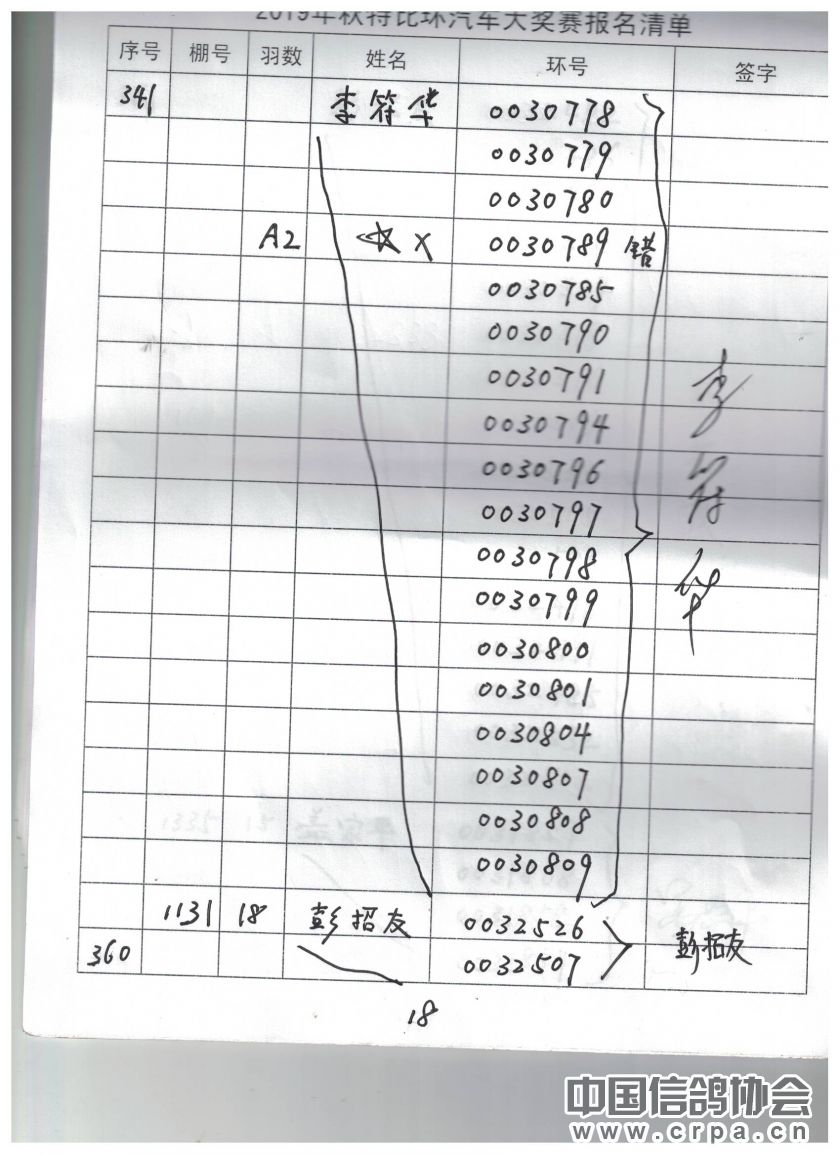 2019年秋特比环汽车大奖赛报名清单
序号 棚号 羽数 姓名 环号 签字
341 李符华 0030778
0030779
0030780
A2 X 0030789 错
0030785
0030790
0030791
0030794
0030796
0030797
0030798
0030799
0030800
0030801
0030804
0030807
0030808
0030809
李符华
1131 18 彭招友 0032526
360 0032507
彭招友
18
中国信鸽协会
www.crpa.cn